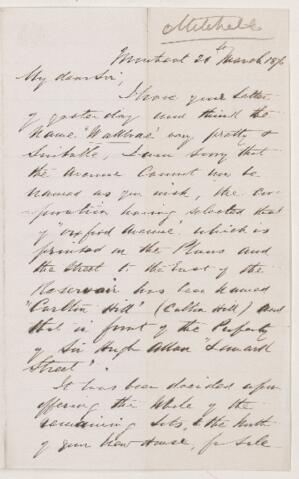 Mitchell
Montreal 21st March 1876
My dear Sir,
I have your letter
of yesterday and think the
name "Wallbrae" very pretty &
Suitable, I am sorry that
the avenue cannot now be
named as you wish, the cor-
poration having selected that
of "Oxford Avenue" which is
printed on the Plans and
the Street to the East of the
Reservoir has been named
"Carlton Hill" (Calton Hill) and
that in front of the Property
of Sir Hugh Allan "Leonard
Street".
It has been decided upon
offering the Whole of the
remaining Lots, to the North
of your New House, for Sale